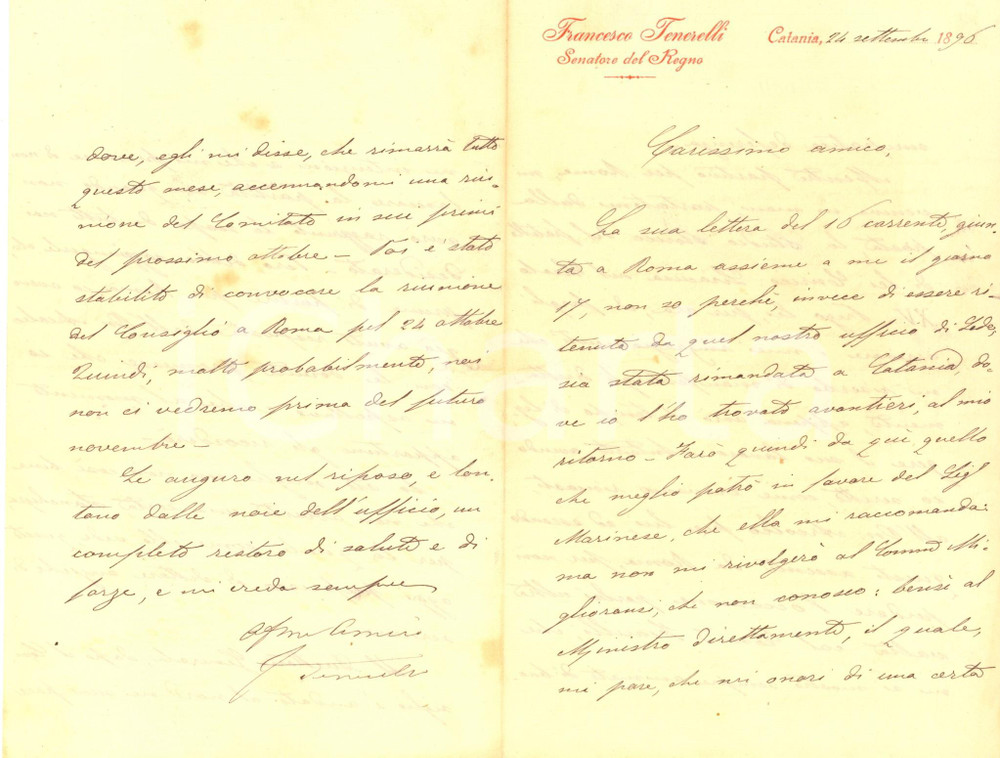 Francesco Tenerelli
Senatore del Regno
Catania, 24 settembre 1896
Carissimo amico,
La sua lettera del 16 corrente, giun-
ta a Roma assieme a me il giorno
17, non so perché, invece di essere ri-
tenuta da quel nostro ufficio di Sede,
sia stata rimandata a Catania, do-
ve io l'ho trovata avantieri, al mio
ritorno - Farò quindi da quì quello
che meglio potrò in favore del Sig.
Marinese, che ella mi raccomanda:
ma non mi rivolgerò al Comm. Mi-
glioransi, che non conosco: bensì al
Ministro direttamente, il quale,
mi pare, che mi onori di una certa
dove, egli mi disse, che rimarrà tutto
questo mese, accennandomi una riu-
nione del Comitato in sui primi
del prossimo ottobre - Poi è stato
stabilito di convocare la riunione
del Consiglio a Roma pel 24 ottobre
Quindi, molto probabilmente, noi
non ci vedremo prima del futuro
novembre -
Le auguro nel riposo, e lon-
tano dalle noie dell'ufficio, un
completo ristoro di salute e di
forze, e mi creda sempre
Affmo Amico
F. Tenerelli